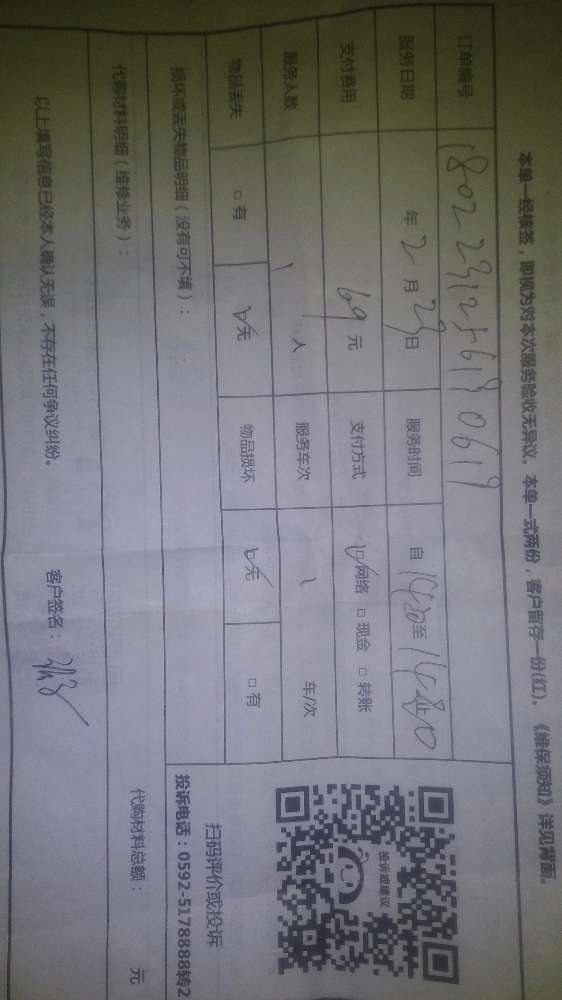 本单一经核签，即视为对本次服务验收无异议。本单一式两份，客户留存一份(红)。《维保须知》详见背面。
订单编号
服务日期 年 2 月 23 日 服务时间 自 至 止
支付费用 69 元 支付方式 ☑网络 □现金 □转账
服务人数 1 人 服务车次 1 车/次
物品丢失 □有 ☑无 物品损坏 ☑无 □有
损坏或丢失物品明细（没有可不填）：
代购材料明细（维修业务）：
代购材料总额： 元
以上填写信息已经本人确认无误，不存在任何争议纠纷。
客户签名：
投诉或建议
扫码评价或投诉
投诉电话：0592-5178888转2